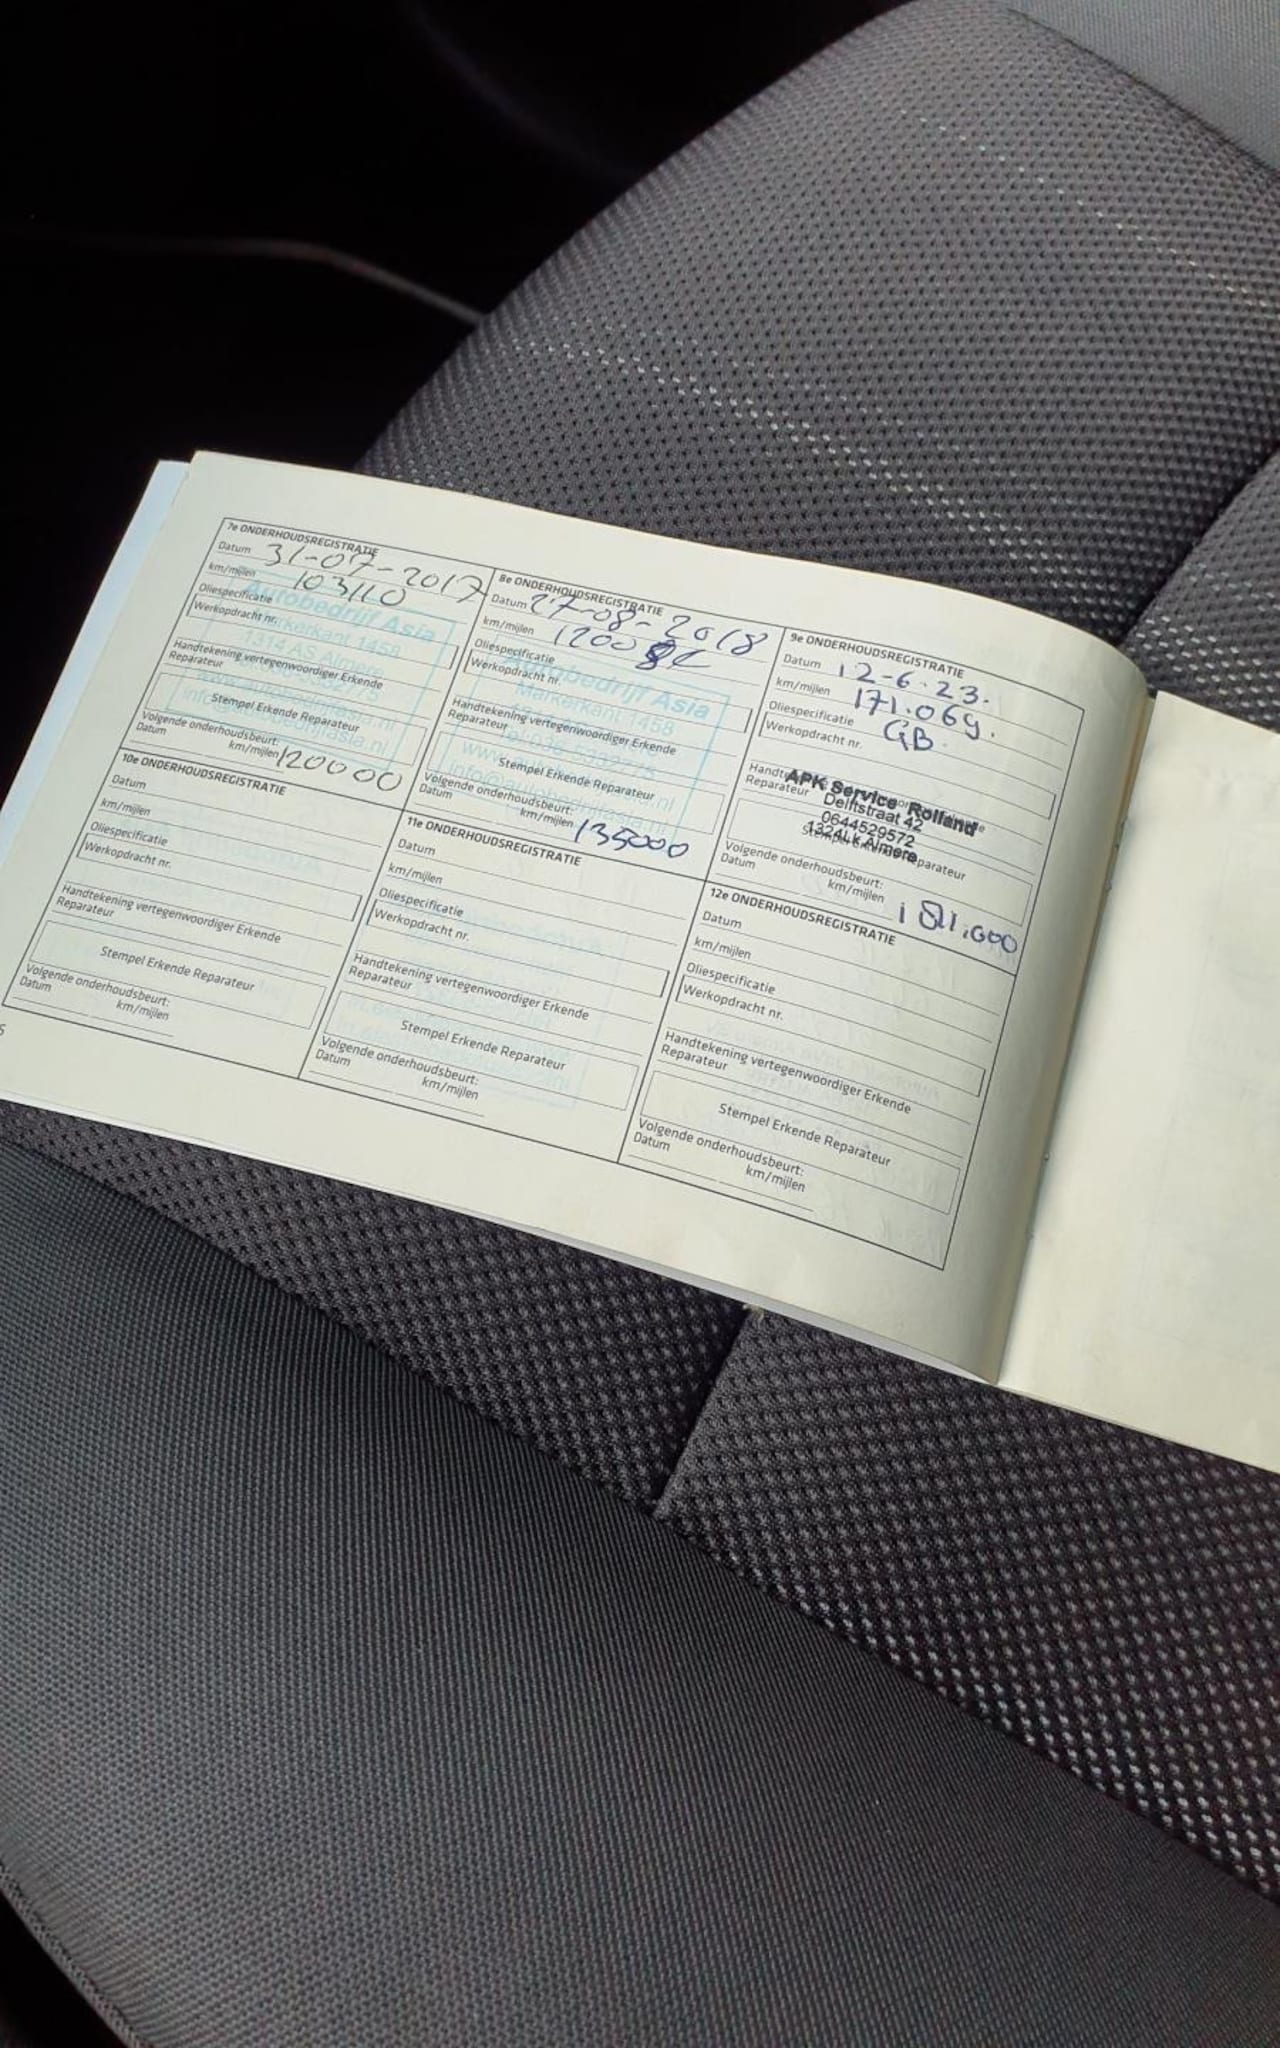 7e ONDERHOUDSREGISTRATIE
Datum 31-07-2017
km/mijlen 103110
Oliespecificatie
Werkopdracht nr.
Autobedrijf Asia
Markerkant 1458
1314 AS Almere
info@autobedrijfasia.nl
Handtekening vertegenwoordiger Erkende
Reparateur
Stempel Erkende Reparateur
Volgende onderhoudsbeurt:
Datum km/mijlen 120000
8e ONDERHOUDSREGISTRATIE
Datum 27-08-2018
km/mijlen
Oliespecificatie
Werkopdracht nr.
Autobedrijf Asia
Markerkant 1458
info@autobedrijfasia.nl
Handtekening vertegenwoordiger Erkende
Reparateur
Stempel Erkende Reparateur
Volgende onderhoudsbeurt:
Datum km/mijlen 135000
9e ONDERHOUDSREGISTRATIE
Datum 12-6-23.
km/mijlen 171.069.
Oliespecificatie GB.
Werkopdracht nr.
Reparateur
APK Service Rolland
Delftstraat 42
0644529572
1324Lk Almere
Volgende onderhoudsbeurt:
Datum km/mijlen
10e ONDERHOUDSREGISTRATIE
Datum
km/mijlen
Oliespecificatie
Werkopdracht nr.
Handtekening vertegenwoordiger Erkende
Reparateur
Stempel Erkende Reparateur
Volgende onderhoudsbeurt:
Datum km/mijlen
11e ONDERHOUDSREGISTRATIE
Datum
km/mijlen
Oliespecificatie
Werkopdracht nr.
Handtekening vertegenwoordiger Erkende
Reparateur
Stempel Erkende Reparateur
Volgende onderhoudsbeurt:
Datum km/mijlen
12e ONDERHOUDSREGISTRATIE
Datum
km/mijlen
Oliespecificatie
Werkopdracht nr.
Handtekening vertegenwoordiger Erkende
Reparateur
Stempel Erkende Reparateur
Volgende onderhoudsbeurt:
Datum km/mijlen